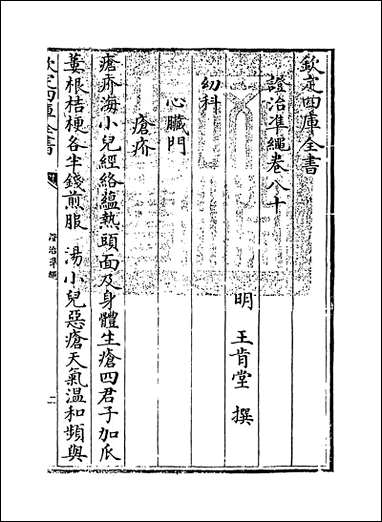 欽定四庫全書
證治準繩卷八十
明 王肯堂 撰
幼科
心臟門
瘡疥
瘡疥海小兒經絡藴熱頭面及身體生瘡四君子加瓜
蔞根桔梗各半錢煎服 湯小兒惡瘡天氣温和頻與
欽定四庫全書
證治準繩